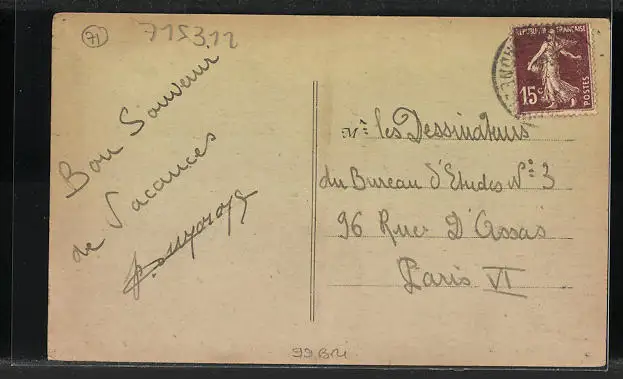 71
715312
Bon Souvenir
de Vacances
RÉPUBLIQUE FRANÇAISE
15c
POSTES
Mrs les Dessinateurs
du Bureau d'Etudes No 3
96 Rue D'Assas
Paris VI